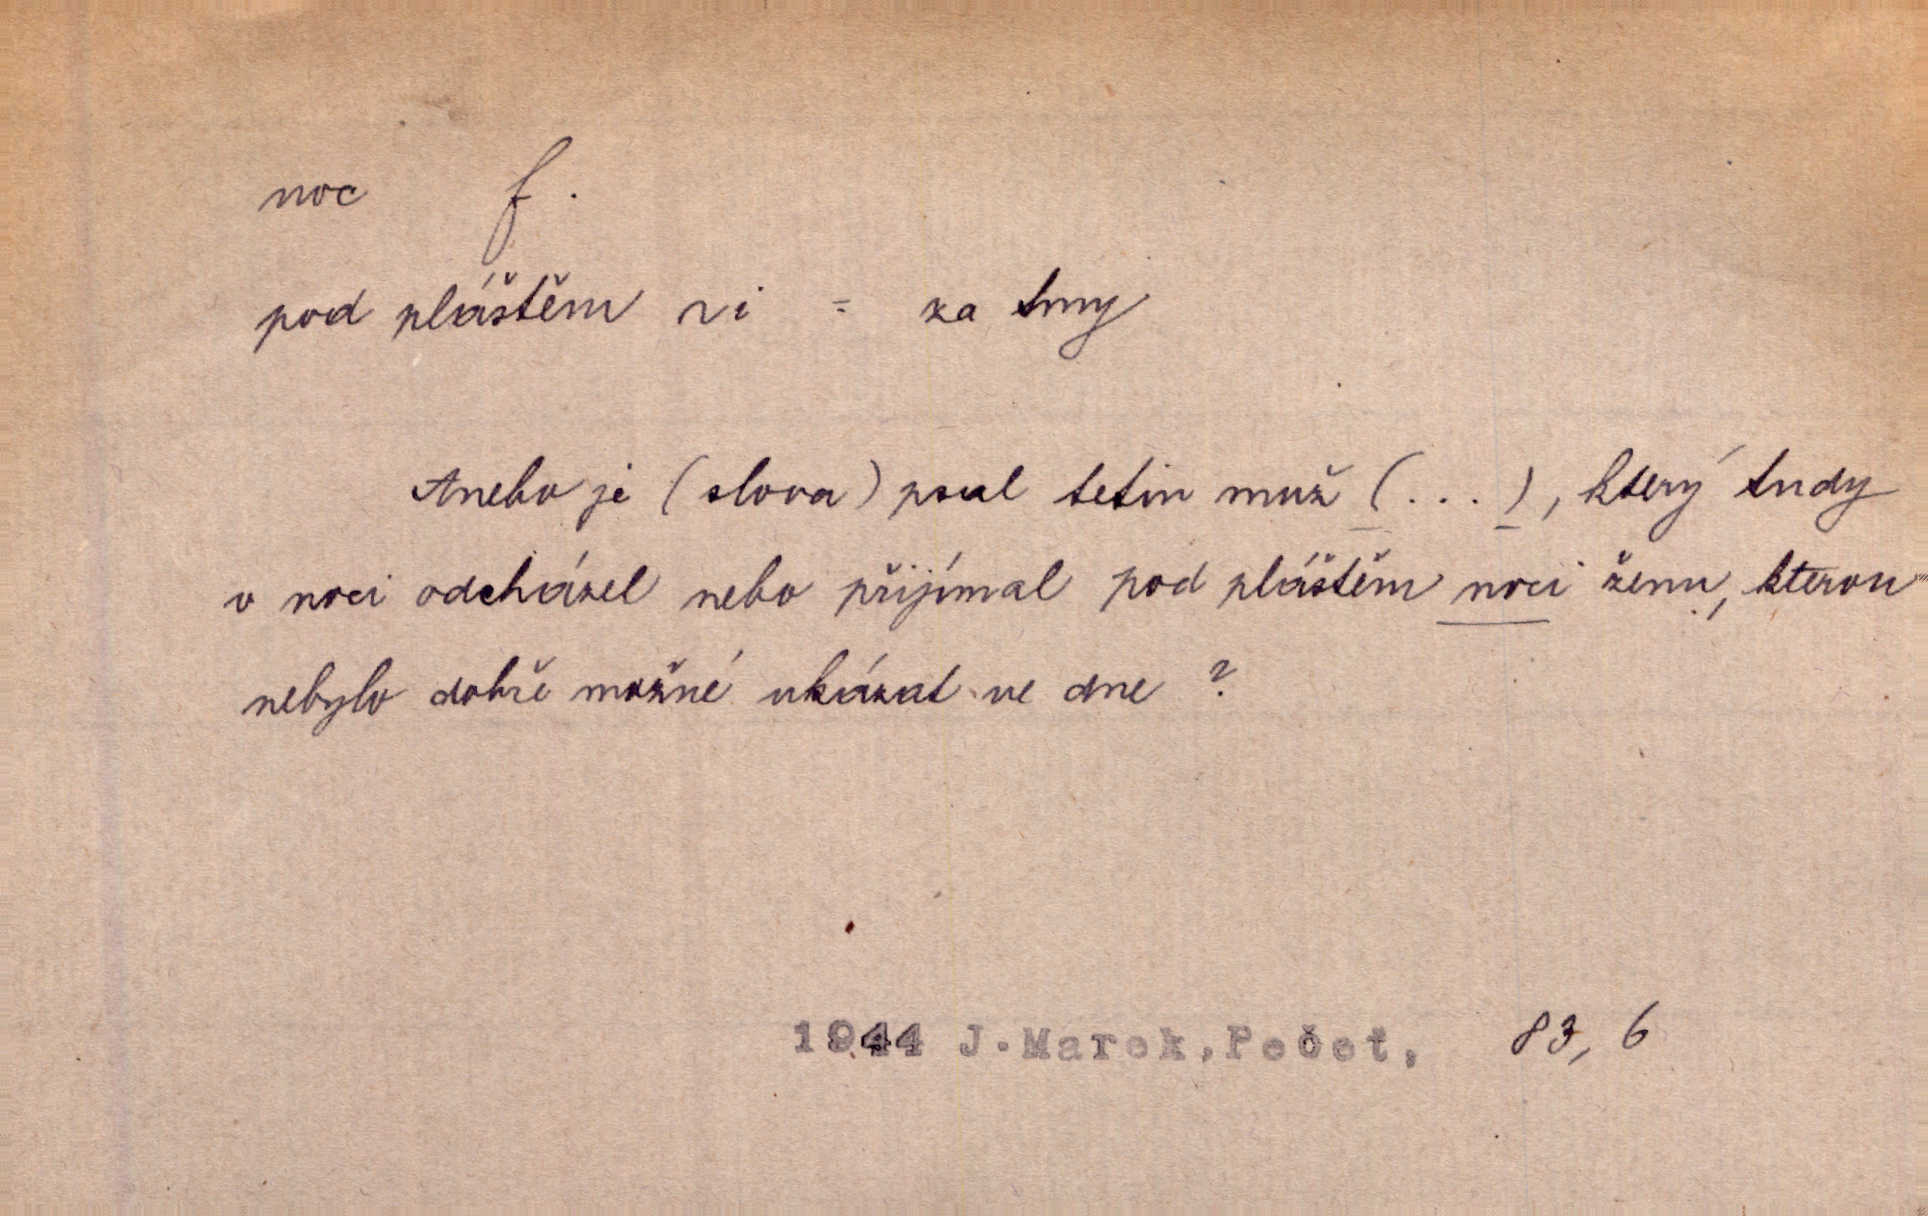 noc f.
pod pláštěm ~i = za tmy
Anebo je (slova) psal tetin muž (...), který tudy
v noci odcházel nebo přijímal pod pláštěm noci ženu, kterou
nebylo dobře možné ukázat ve dne ?
1944 J.Marek,Pečeť, 83, 6